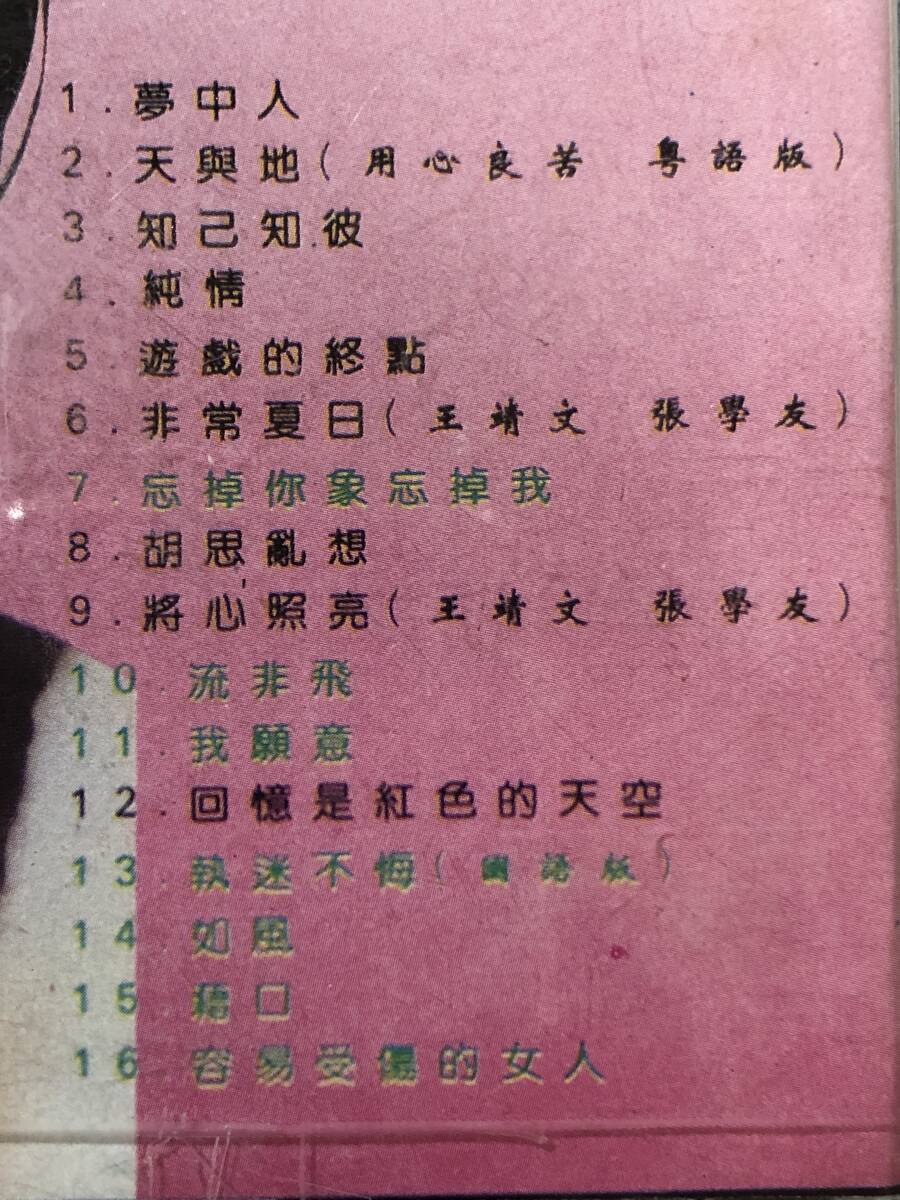 1. 夢中人
2. 天與地(用心良苦 粵語版)
3. 知己知彼
4. 純情
5. 遊戲的終點
6. 非常夏日(王靖文 張學友)
7. 忘掉你象忘掉我
8. 胡思亂想
9. 將心照亮(王靖文 張學友)
10. 流非飛
11. 我願意
12. 回憶是紅色的天空
13. 執迷不悔(國語版)
14. 如風
15. 藉口
16. 容易受傷的女人